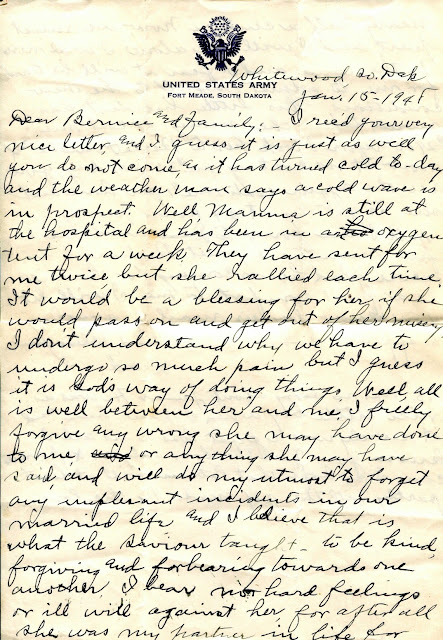 UNITED STATES ARMY
FORT MEADE, SOUTH DAKOTA
Whitewood So. Dak
Jan. 15-1945
Dear Bernice and family;- I recd your very
nice letter and I guess it is just as well
you do not come, as it has turned cold to-day
and the weather man says a cold wave is
in prospect. Well Mamma is still at
the hospital and has been in an oxygen
tent for a week. They have sent for
me twice, but she rallied each time.
It would be a blessing for her, if she
would pass on and get out of her misery.
I don't understand why we have to
undergo so much pain but I guess
it is Gods way of doing things. Well, all
is well between her and me, I freely
forgive any wrong she may have done
to me, or anything she may have
said, and will do my utmost to forget
any unplesant incidents in our
married life and I believe that is
what the Saviour taught - to be kind,
forgiving and forbearing towards one
another. I bear no hard feelings
or ill will against her for after all
she was my partner in life for